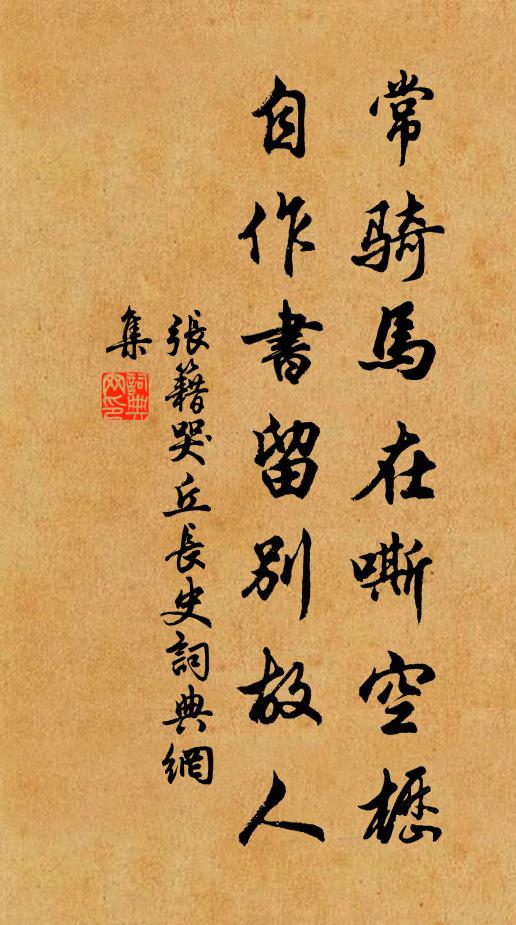 常騎馬在嘶空櫪
自作書留別故人
張籍哭丘長史詞典網
集
詞典
网印